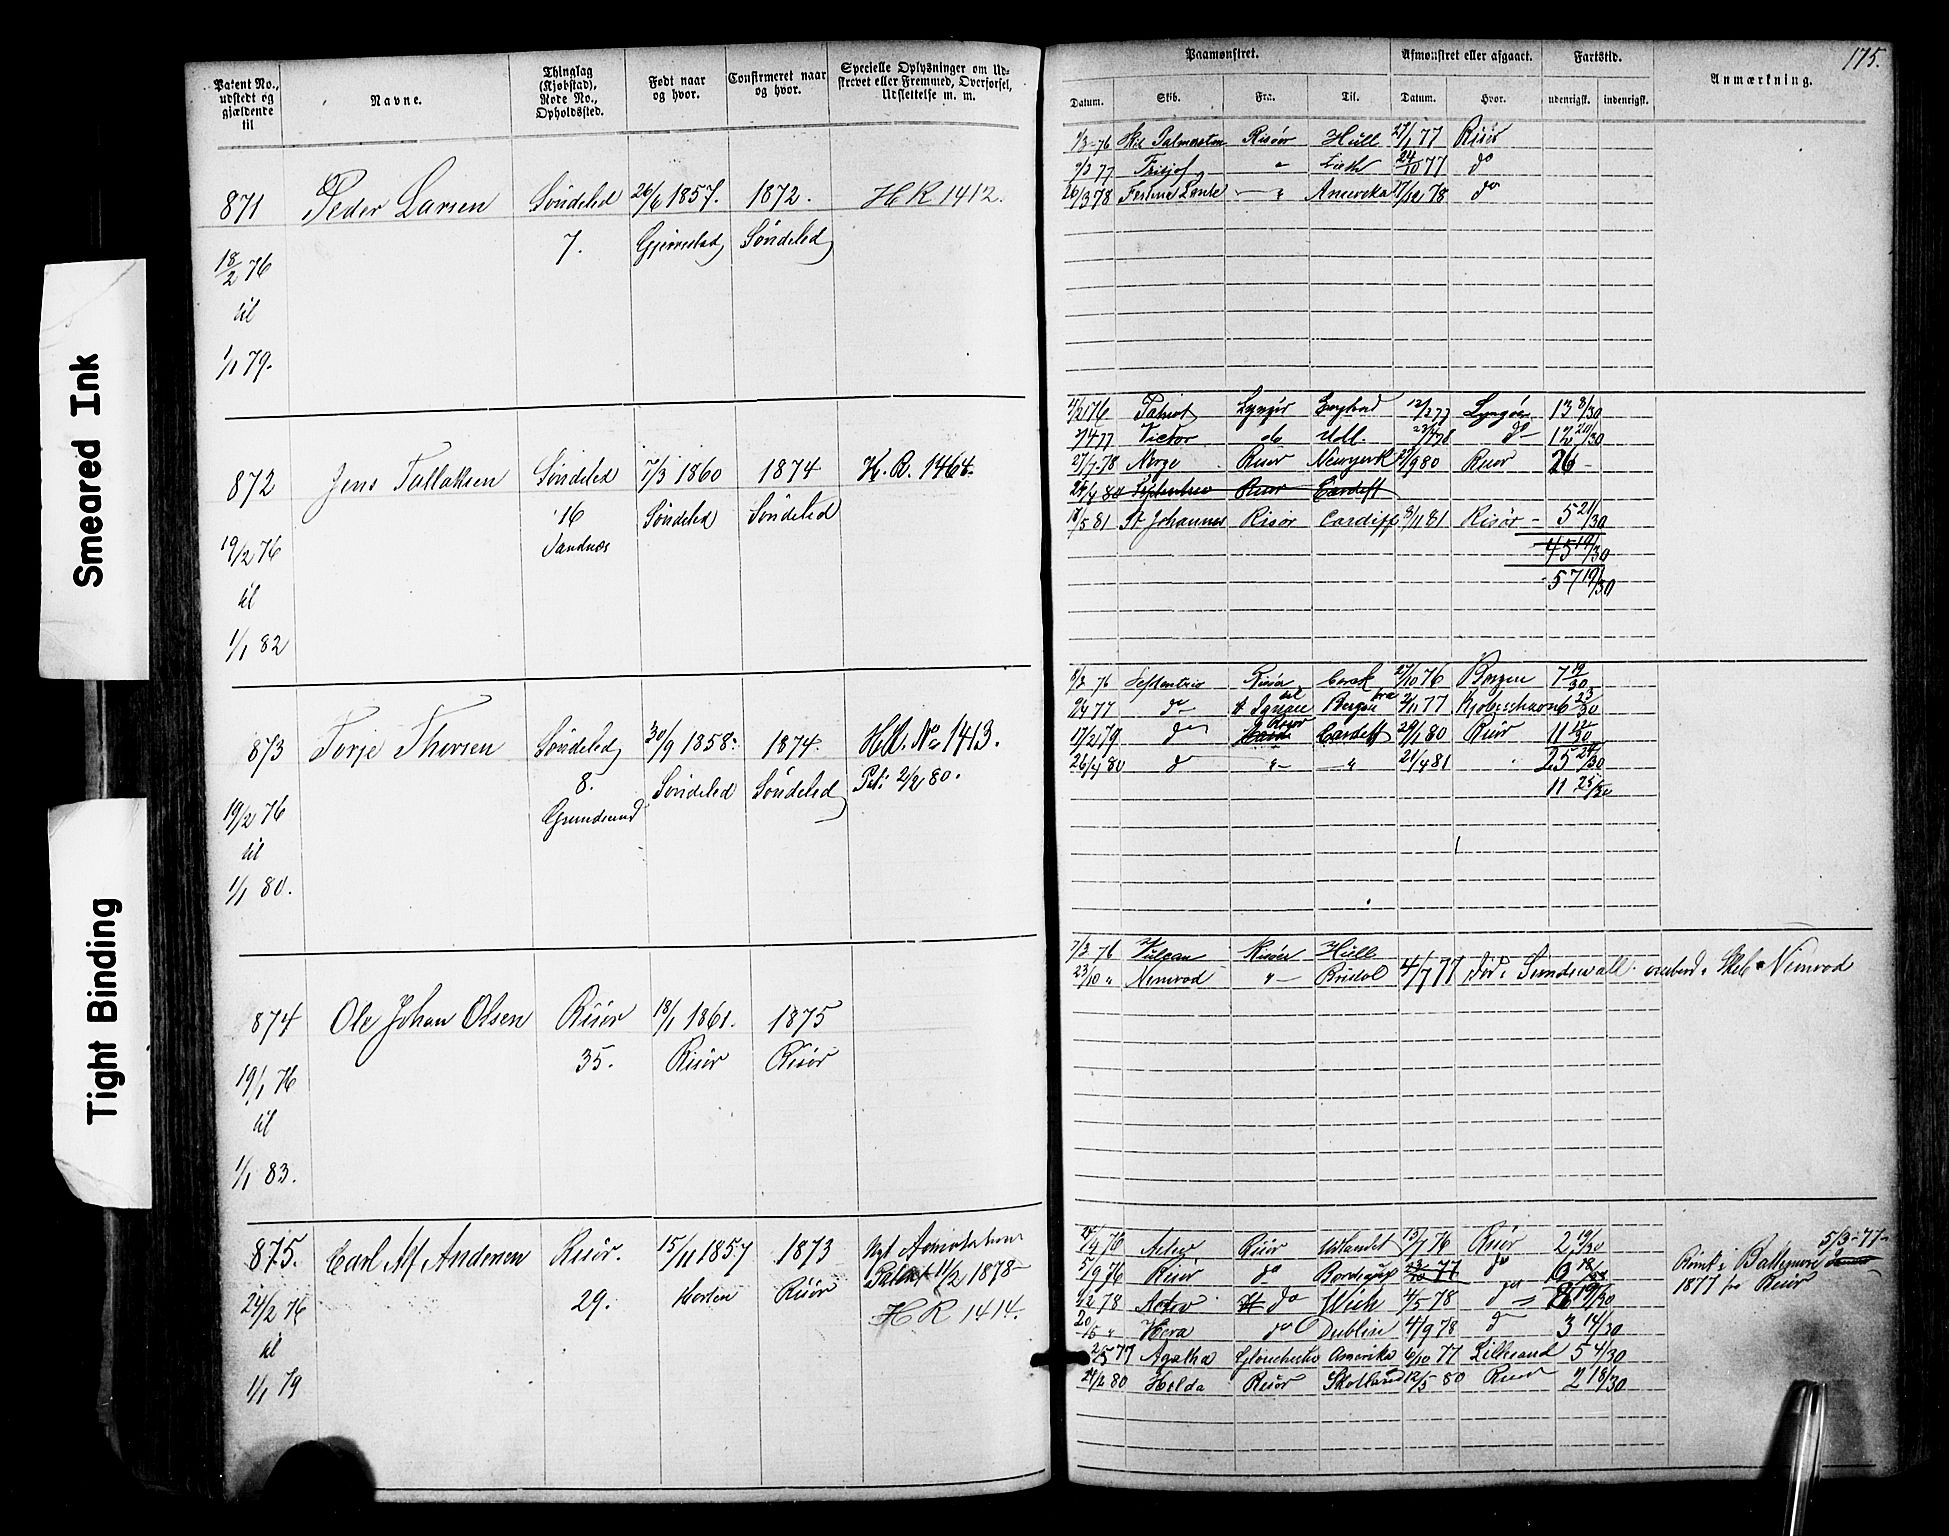 Smeared Ink
Tight Binding
Patent No., udstedt og gjældende til
Navne.
Thinglag (Kjøbstad), Rode No., Opholdssted.
Født naar og hvor.
Confirmeret naar og hvor.
Specielle Oplysninger om Udskrevet eller Fremmed, Overførsel, Udslettelse m. m.
871 Peder Larsen Søndeled 26/6 1857. 1872. H R 1412.
7. Gjerrestad Søndeled
18/2 76
til
1/1 79.
872 Jens Tallaksen Søndeled 7/3 1860 1874 H. R. 1464.
16 Søndeled Søndeled
Sandnæs
19/2 76
til
1/1 82
873 Torje Thorsen Søndeled 30/9 1858. 1874. HR. No 1413.
8. Søndeled Søndeled Pat: 2/2 80.
Grundesund
19/2 76
til
1/1 80.
874 Ole Johan Olsen Risør 18/1 1861. 1875
35. Risør Risør
19/1 76
til
1/1 83.
875. Carl Alf Andersen Risør. 15/11 1857 1873 Nyt Annotations
Patent 11/2 1878
29. Horten Risør
H R 1414.
24/2 76
til
1/1 79
175.
Paamønstret. Afmønstret eller afgaaet. Fartstid. Anmærkning.
Datum. Skib. Fra. Til. Datum. Hvor. udenrigsk. indenrigsk.
1/3 76 Palmerston Risør Hull 27/1 77 Risør
2/3 77 Frisjof " Lieth 24/10 77 do
26/3 78 Festina Lente " Amerika 7/12 78 do
4/2 76 Patriot Lyngør England 12/2 77 Lyngør 13 3/30
7/4 77 Victor do Udl. do 12 20/30
27/7 78 Norge Risør Newyork 9 80 Risør 26 -
24/4 80 Septentrio Risør Cardiff
18/5 81 St Johannes Risør Cardiff 8/11 81 Risør 5 21/30
45 19/30
57 19/30
8/3 76 Septentrio Risør Corck 27/10 76 Bergen 7 19/30
4 77 do Bergen 77 Kjøbenhavn 6 23/30
17/2 79 do Risør Cardiff 28/1 80 Risør 11 12/30
25 24/30
26/4 80 do " " 21/4 81 11 25/30
7/3 76 Vulcan Risør Hull
23/10 " Nemrod " Bristol 4/7 77 død i Sundswall ombord i Skib Nimrod
Activ Risør Udlandet 15/7 76 Risør 2 19/30
5/9 76 Risør do 77 do
5/3-77
Rømt i Baltimore
1877 fra Risør
2 78 Activ do Wich 4/5 78 do 19/30
Hera do Dublin 4/9 78 do 3 14/30
5 77 Agatha Glouchester Amerika 6/10 77 Lillesand 5 4/30
2 80 Helda Risør Skotland 12/5 80 Risør 2 18/30